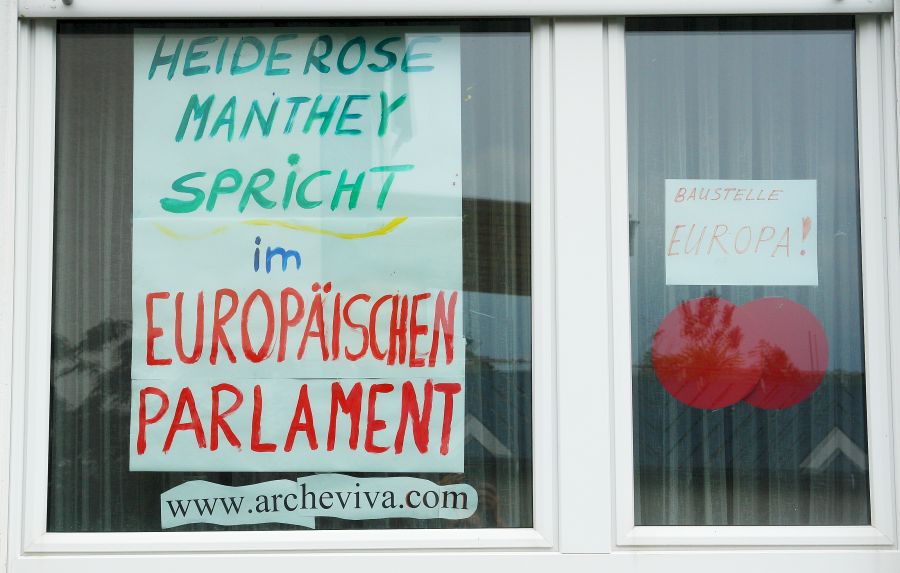 HEIDEROSE
MANTHEY
SPRiCHT
im
EUROPÄISCHEN
PARLAMENT
www.archeviva.com
BAUSTELLE
EUROPA!